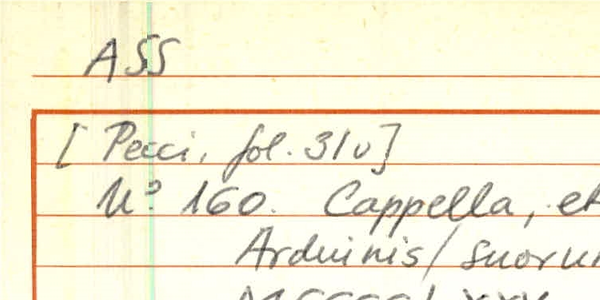 ASS
[Pecci, fol. 31v]
N° 160. Cappella, et
Arduinis / suorum
MCCCCLXXV